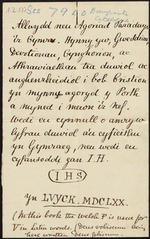 Allwydd neu Agoriad Paradwys
i'r Cymru. Hynny yw, Gweddiau,
Devotionau, Cynghorion, ac
Athrawiaethau tra duwiol ac
anghenrheidiol i bob Cristion
yn mynny agoryd y Porth
a myned i mewn i'r nef.
wedi eu cynnull o amryw
lyfrau duwiol a'u cyfieithu
yn Gymraeg, neu wedi eu
cyfansoddi gan I.H.
IHS
Yn LVYCK. MDCLXX.
(In this book the welsh F is used for
V in latin words,
have written